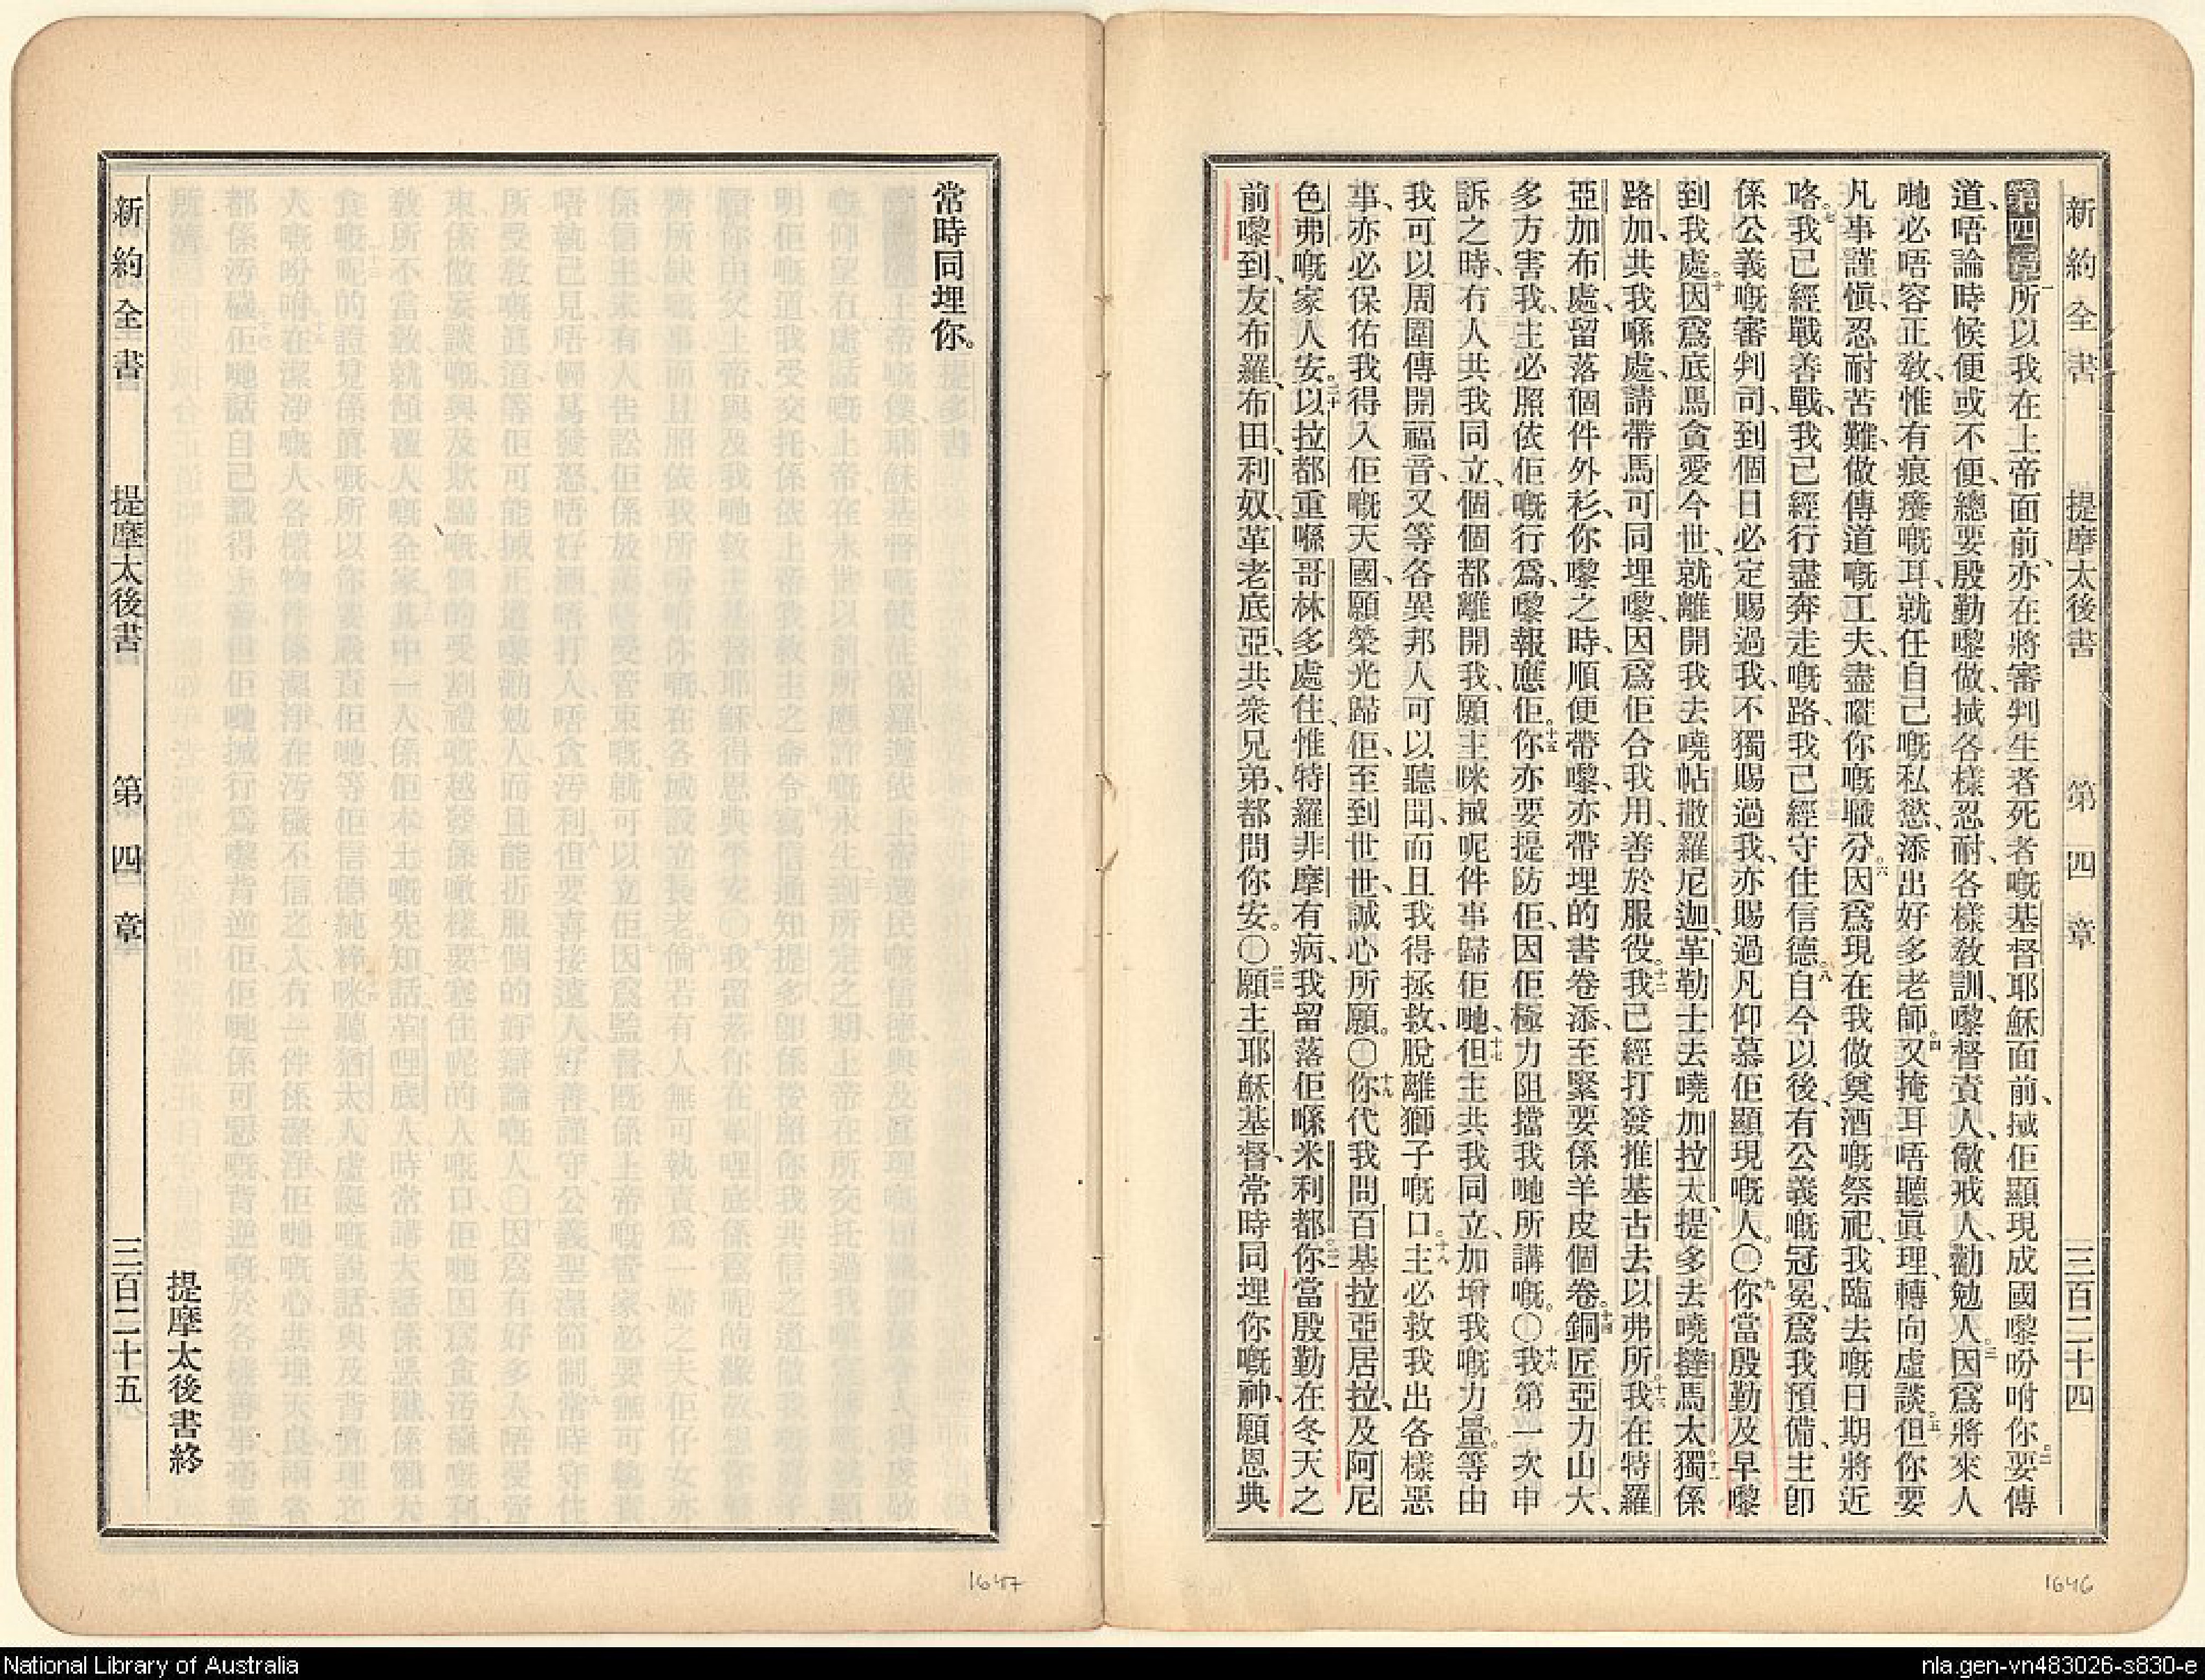 新約全書 提摩太後書 第四章 三百二十四
第四章一所以我在上帝面前、亦在將審判生者死者嘅基督耶穌面前、搣佢顯現成國嚟吩咐你、二要傳
道、唔論時候便或不便、總要殷勤嚟做、搣各樣忍耐、各樣教訓、嚟督責人、儆戒人、勸勉人。三因爲將來人
哋必唔容正教、惟有痕癢嘅耳、就任自己嘅私慾、添出好多老師。四又掩耳唔聽眞理、轉向虛談。五但你要
凡事謹愼、忍耐苦難、做傳道嘅工夫、盡嚡你嘅職分。六因爲現在我做奠酒嘅祭祀、我臨去嘅日期將近
咯。七我已經戰善戰、我已經行盡奔走嘅路、我已經守住信德。八自今以後、有公義嘅冠冕、爲我預備、主卽
係公義嘅審判司、到個日必定賜過我、不獨賜過我、亦賜過凡仰慕佢顯現嘅人。〇九你當殷勤及早嚟
到我處。十因爲底馬貪愛今世、就離開我去嘵帖撒羅尼迦、革勒士去嘵加拉太、提多去嘵撻馬太。十一獨係
路加、共我喺處、請帶馬可同埋嚟、因爲佢合我用、善於服役。十二我已經打發推基古去以弗所。十三我在特羅
亞加布處、留落個件外衫、你嚟之時、順便帶嚟、亦帶埋的書卷添、至緊要係羊皮個卷。十四銅匠亞力山大、
多方害我、主必照依佢嘅行爲、嚟報應佢。十五你亦要提防佢、因佢極力阻擋我哋所講嘅。〇十六我第一次申
訴之時、冇人共我同立、個個都離開我、願主咪搣呢件事歸佢哋、十七但主共我同立、加增我嘅力量。等由
我可以周圍傳開福音、又等各異邦人可以聽聞、而且我得拯救、脫離獅子嘅口。十八主必救我出各樣惡
事、亦必保佑我得入佢嘅天國、願榮光歸佢、至到世世、誠心所願。〇十九你代我問百基拉亞居拉、及阿尼
色弗嘅家人安。二十以拉都重喺哥林多處住、惟特羅非摩有病、我留落佢喺米利都。二一你當殷勤在冬天之
前嚟到、友布羅、布田、利奴、革老底亞、共衆兄弟、都問你安。〇二二願主耶穌基督、常時同埋你嘅神、願恩典
1646
常時同埋你。
提摩太後書終
新約全書 提摩太後書 第四章 三百二十五
1647
National Library of Australia
nla.gen-vn483026-s830-e